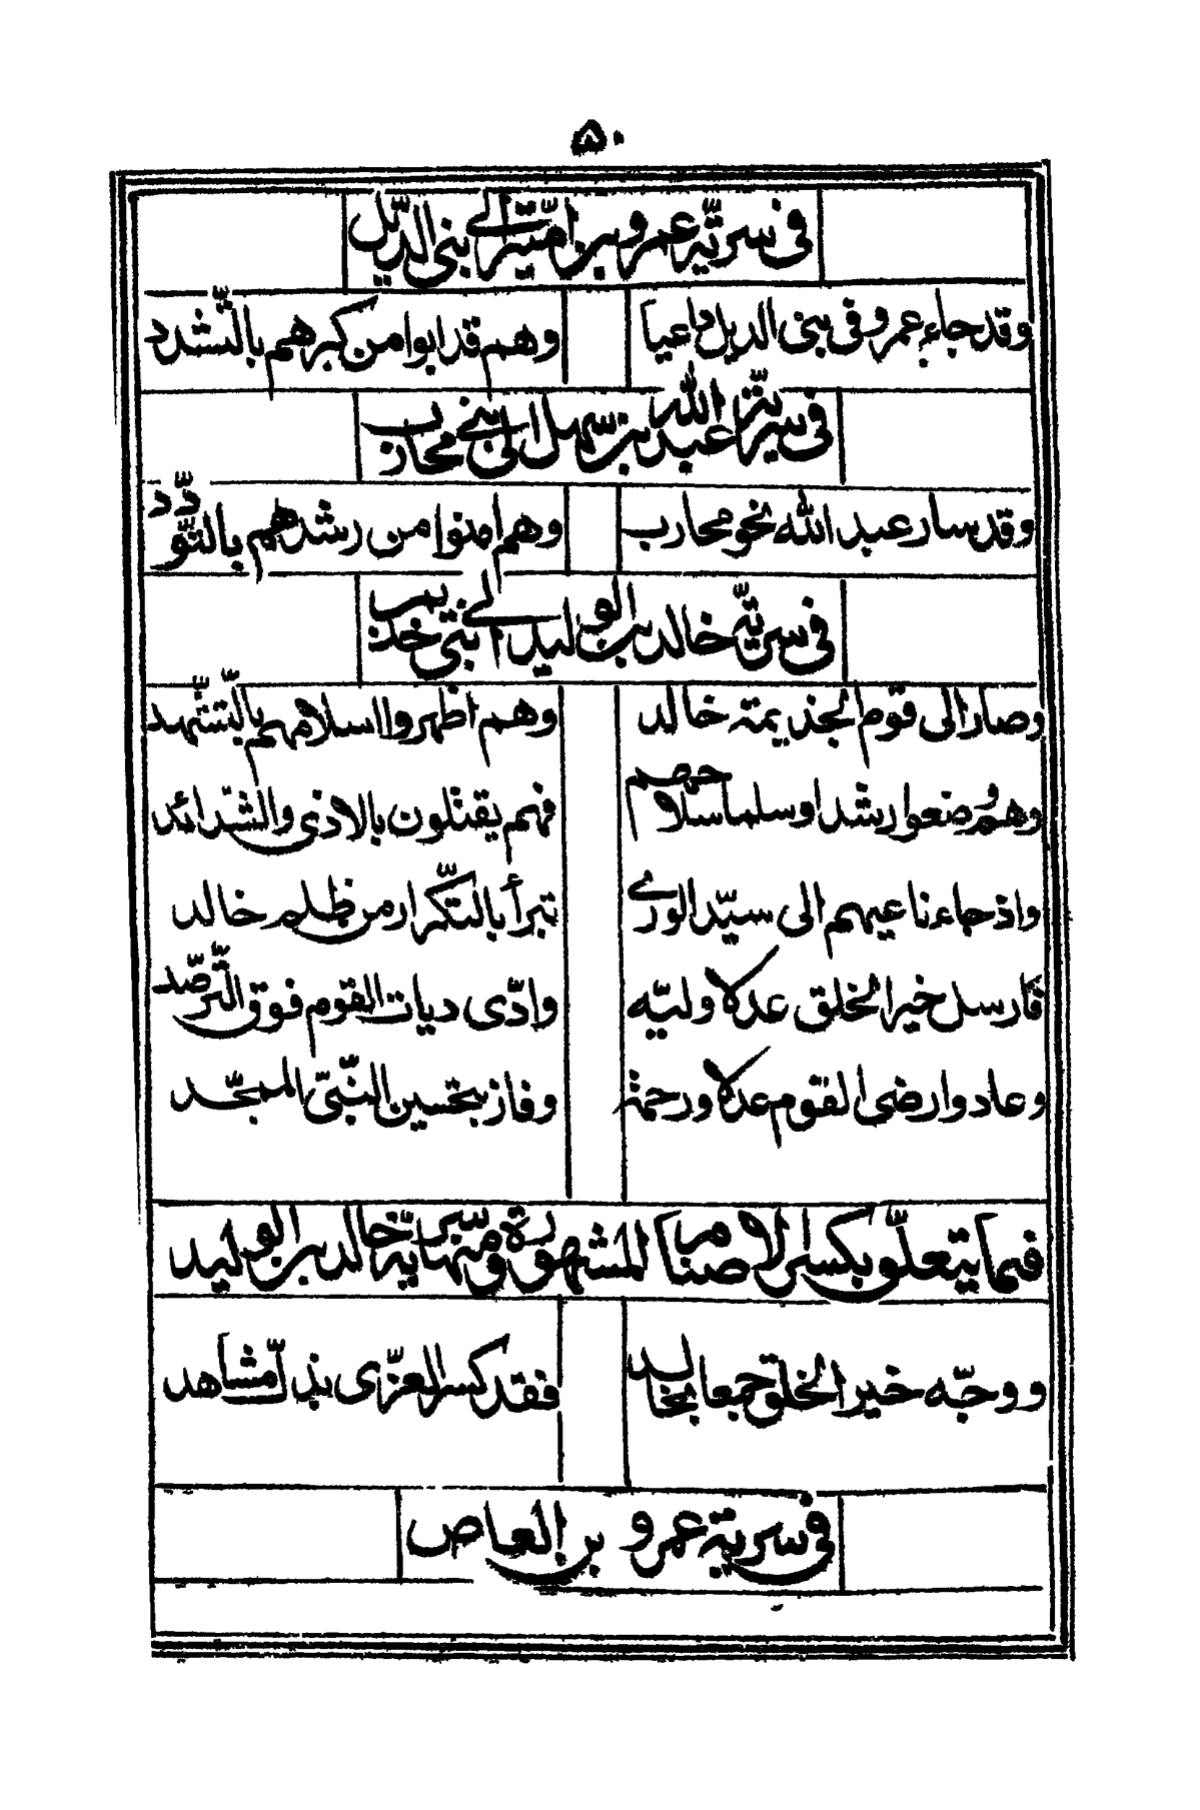 ٥٠
في سريّة عمرو بن اميّة الى بني الديّل
وقد جاء عمرو في بني الديل داعيا وهم قد ابوا من كبرهم بالتّشدد
في سريّة عبد الله بن سهل الى بني محارب
وقد سار عبد الله نحو محارب وهم امنوا من رشدهم بالتّودّد
في سريّة خالد بن الوليد الى بني خذيمه
وصار الى قوم الجذيمة خالد وهم اظهروا اسلامهم بالتّشهّد
وهم وضعوا رشدا وسلما سلاحهم فهم يقتلون بالاذى والشّدائد
واذ جاء ناعيهم الى سيّد الورى تبرأ بالتّكرار من ظلم خالد
فارسل خير الخلق عدلا وليّه وادّى ديات القوم فوق التّرصّد
وعاد وارضى القوم عدلا ورحمة وفاز بتحسين النّبيّ الممجّد
فيما يتعلّق بكسر الاصنام المشهورة ومنها سريّة خالد بن الوليد
ووجّه خير الخلق جمعا بخالد فقد كسر العزّى بذلّ مشاهد
في سرية عمرو بن العاص